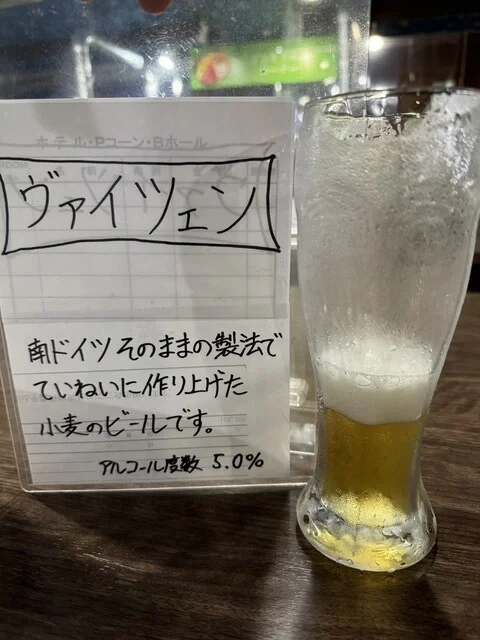 ホテル・Pコーン・Bホール
ヴァイツェン
南ドイツそのままの製法で
ていねいに作り上げた
小麦のビールです。
アルコール度数 5.0%